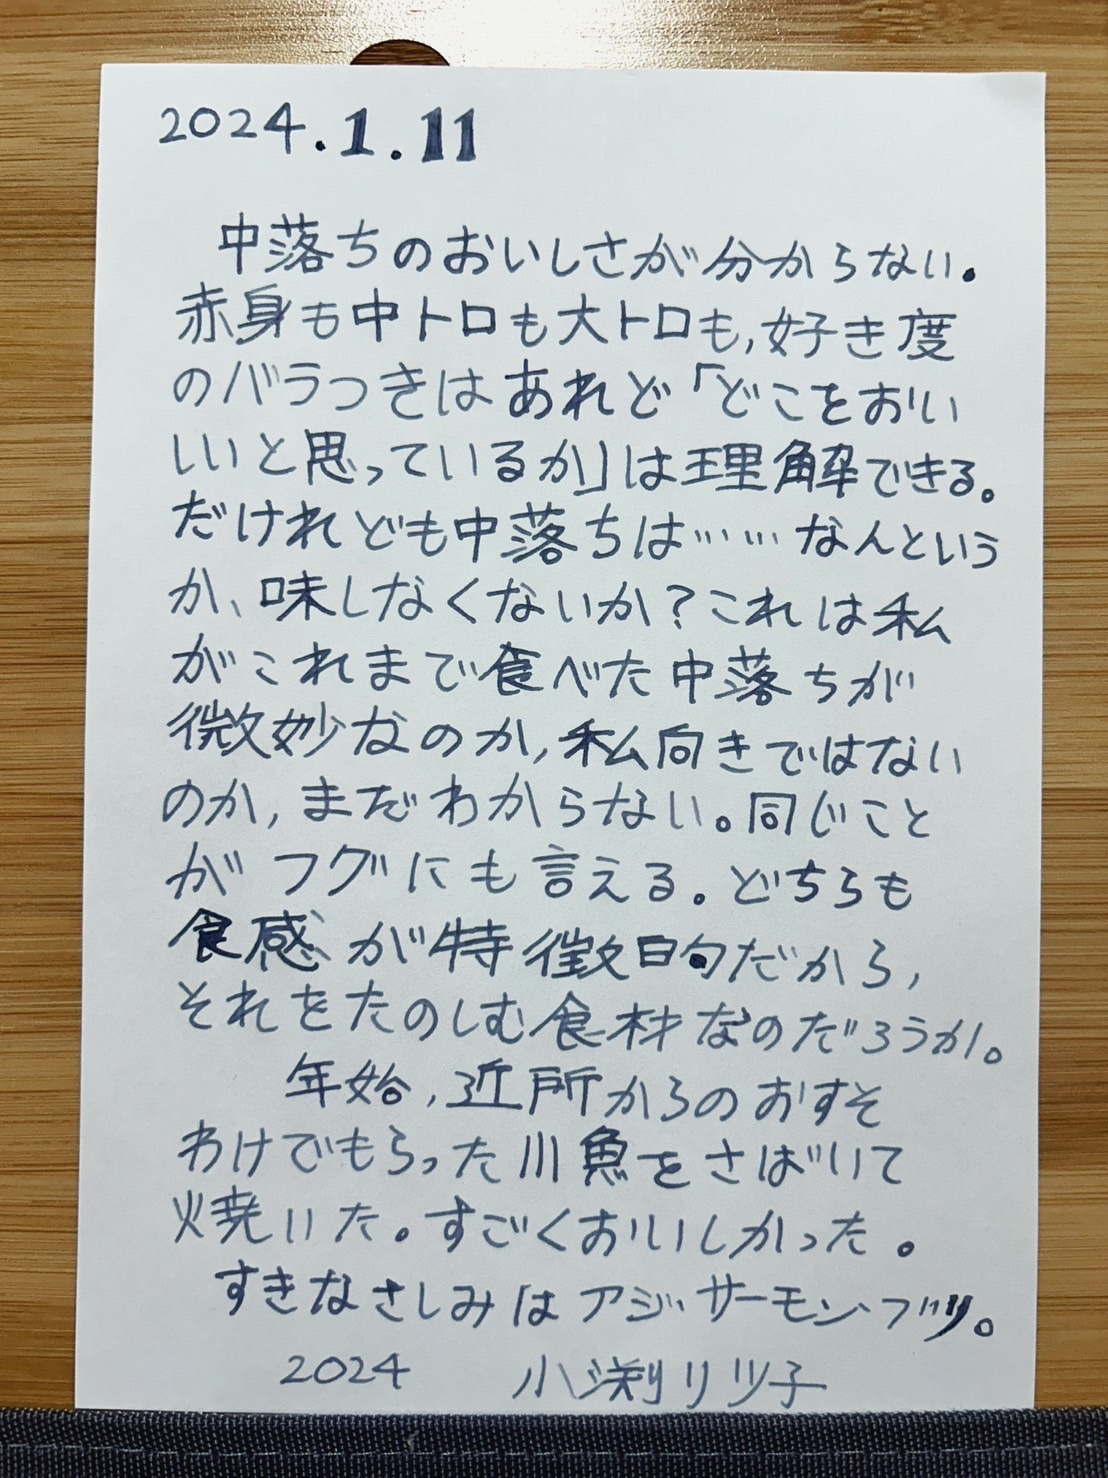 2024.1.11
中落ちのおいしさが分からない。
赤身も中トロも大トロも,好き度
のバラつきはあれど「どこをおい
しいと思っているか」は理解できる。
だけれども中落ちは……なんという
か、味しなくないか？これは私
がこれまで食べた中落ちが
微妙なのか,私向きではない
のか,まだわからない。同じこと
がフグにも言える。どちらも
食感が特徴的だから,
それをたのしむ食材なのだろうか。
年始,近所からのおすそ
わけでもらった川魚をさばいて
焼いた。すごくおいしかった。
すきなさしみはアジ・サーモン・ブリ。
2024 小渕リツ子